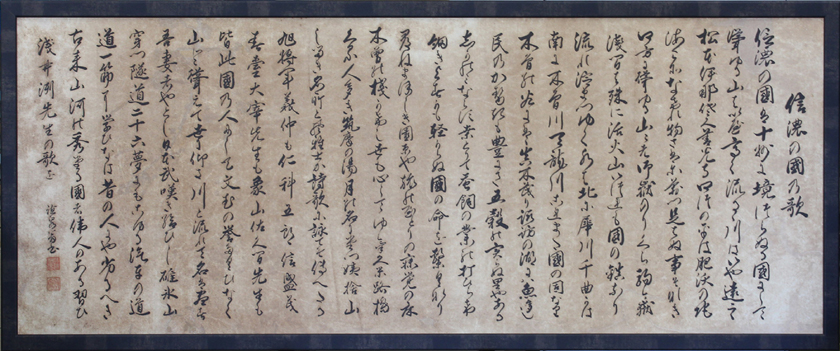 信濃の國の歌
信濃の國は十州に境つらぬる國にして
聳ゆる山はいや高く流るゝ川はいや遠し
松本伊那佐久善光寺四つの平は肥沃の地
海こそなけれ物さわに萬つ足らぬ事そなき
四方に聳ゆる山々は御嶽のりくら駒か嶽
浅間は殊に活火山いつれも國の鎮めなり
流れ淀まつゆく水は北に犀川千曲川
南に木曽川天龍川これまた國の固めなり
木曽の谷には真木茂り諏訪の湖には魚多し
民のかせきも豊にて五穀の実らぬ里やある
しかのみならす桑とりて蚕飼の業の打ちひらけ
細きよすかも軽からぬ國の命を繋くなり
尋ねまほしき園原や旅のやとりの寐覚の床
木曽の棧かけし世も心してゆけ久米路橋
くる人多き筑摩の湯月の名に立つ姨捨山
しるき名所と風雅士か詩歌に詠てそ傳へたる
旭将軍義仲も仁科五郎信盛も
春臺太宰先生も象山佐久間先生も
皆此國の人にして文武の誉たくひなく
山と聳えて世に仰き川と流れて名は尽す
吾妻はやとし日本武嘆き給ひし碓氷山
穿つ隧道二十六夢にもこゆる汽車の道
道一筋に学ひなは昔の人にや劣るへき
古来山河の秀てたる國は偉人のある習ひ
浅井洌先生の歌を